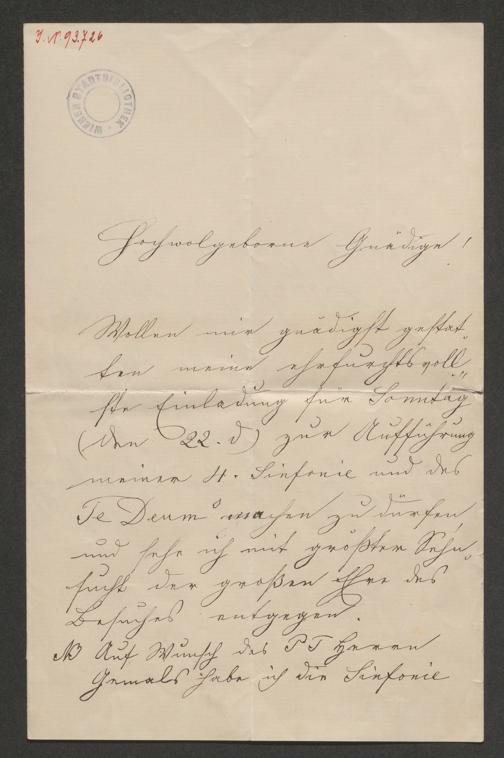 I.N. 93.726
WIENER STADTBIBLIOTHEK
Hochwolgeborne Gnädige!
Wollen mir gnädigst gestat„
ten meine ehrfurchtsvoll„
ste Einladung für Sonntag
(den 22. d) zur Aufführung
meiner 4. Sinfonie und des
Te Deum's machen zu dürfen,
und sehe ich mit größter Sehn„
sucht der großen Ehre des
Besuches entgegen.
NB Auf Wunsch des P T Herrn
Gemals habe ich die Sinfonie